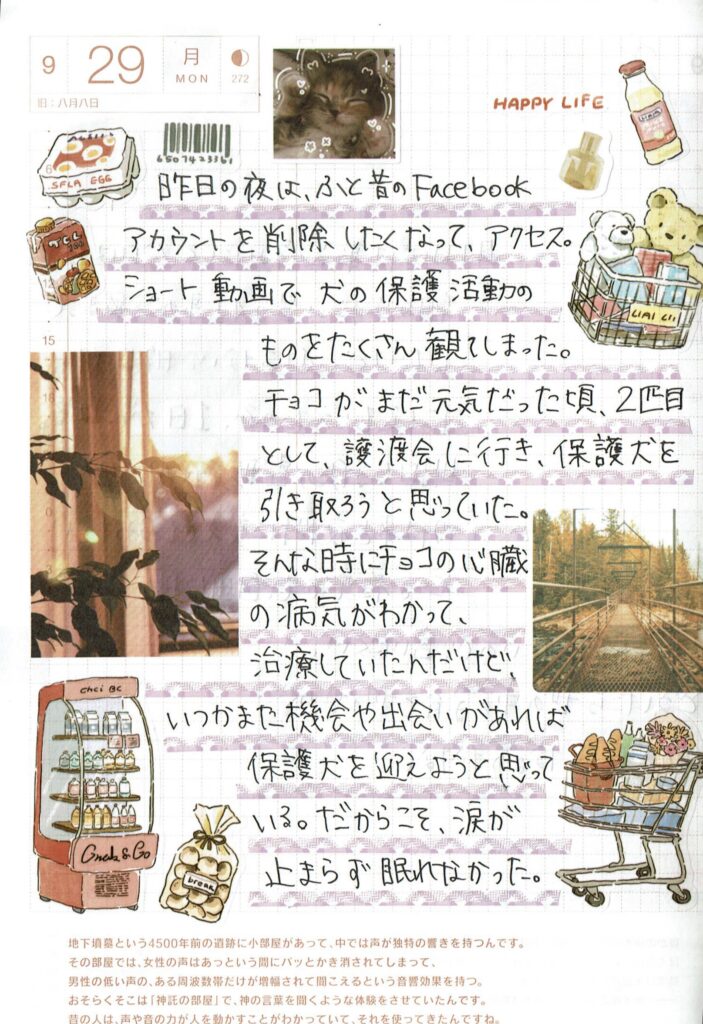 9 29 月
MON
272
旧：八月八日
HAPPY LIFE
SFLA EGG
昨日の夜は、ふと昔のFacebook
アカウントを削除したくなって、アクセス。
ショート動画で犬の保護活動の
ものをたくさん観てしまった。
15
チョコがまだ元気だった頃、2匹目
18
として、譲渡会に行き、保護犬を
引き取ろうと思っていた。
そんな時にチョコの心臓
の病気がわかって、
治療していたんだけど、
いつかまた機会や出会いがあれば
保護犬を迎えようと思って
いる。だからこそ、涙が
止まらず眠れなかった。
break
地下墳墓という4500年前の遺跡に小部屋があって、中では声が独特の響きを持つんです。
その部屋では、女性の声はあっという間にパッとかき消されてしまって、
男性の低い声の、ある周波数帯だけが増幅されて聞こえるという音響効果を持つ。
おそらくそこは「神託の部屋」で、神の言葉を聞くような体験をさせていたんです。
昔の人は、声や音の力が人を動かすことがわかっていて、それを使ってきたんですね。